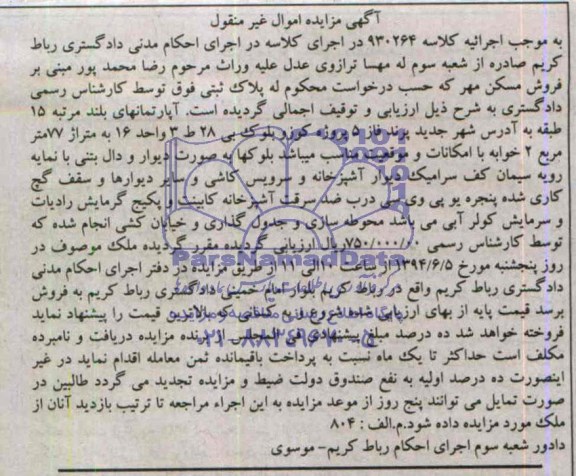 آگهی مزایده اموال غیر منقول
به موجب اجرائیه کلاسه ۹۳۰۲۶۴ در اجرای کلاسه در اجرای احکام مدنی دادگستری رباط
کریم صادره از شعبه سوم له مهسا ترازوی عدل علیه وراث مرحوم رضا محمد پور مبنی بر
فروش مسکن مهر که حسب درخواست محکوم له پلاک ثبتی فوق توسط کارشناس رسمی
دادگستری به شرح ذیل ارزیابی و توقیف اجمالی گردیده است. آپارتمانهای بلند مرتبه ۱۵
طبقه به آدرس شهر جدید پرند فاز ۵ پروژه کوزو بلوک بی ۲۸ ط ۳ واحد ۱۶ به متراژ ۷۷متر
مربع ۲ خوابه با امکانات و موقعیت مناسب میباشد بلوکها به صورت دیوار و دال بتنی با نمایه
رویه سیمان کف سرامیک دیوار آشپزخانه و سرویس کاشی و سایر دیوارها و سقف گچ
کاری شده پنجره یو پی وی سی درب ضد سرقت آشپزخانه کابینت و پکیج گرمایش رادیات
و سرمایش کولر آبی می باشد محوطه سازی و جدول گذاری و خیابان کشی انجام شده که
توسط کارشناس رسمی ۷۵۰/۰۰۰/۰۰۰ریال ارزیابی گردیده مقرر گردیده ملک موصوف در
روز پنجشنبه مورخ ۱۳۹۴/۶/۵ از ساعت ۱۰ الی ۱۱ از طریق مزایده در دفتر اجرای احکام مدنی
دادگستری رباط کریم واقع در رباط کریم بلوار امام خمینی دادگستری رباط کریم به فروش
برسد قیمت پایه از بهای ارزیابی شده شروع و به کسانی که بالاترین قیمت را پیشنهاد نماید
فروخته خواهد شد ده درصد مبلغ پیشنهادی فی المجلس از برنده مزایده دریافت و نامبرده
مکلف است حداکثر تا یک ماه نسبت به پرداخت باقیمانده ثمن معامله اقدام نماید در غیر
اینصورت ده درصد اولیه به نفع صندوق دولت ضبط و مزایده تجدید می گردد طالبین در
صورت تمایل می توانند پنج روز از موعد مزایده به این اجراء مراجعه تا ترتیب بازدید آنان از
ملک مورد مزایده داده شود.م.الف : ۸۰۴
دادور شعبه سوم اجرای احکام رباط کریم- موسوی
ParsNamadData
۰۲۱-۸۸۳۴۹۶۷۰-۵